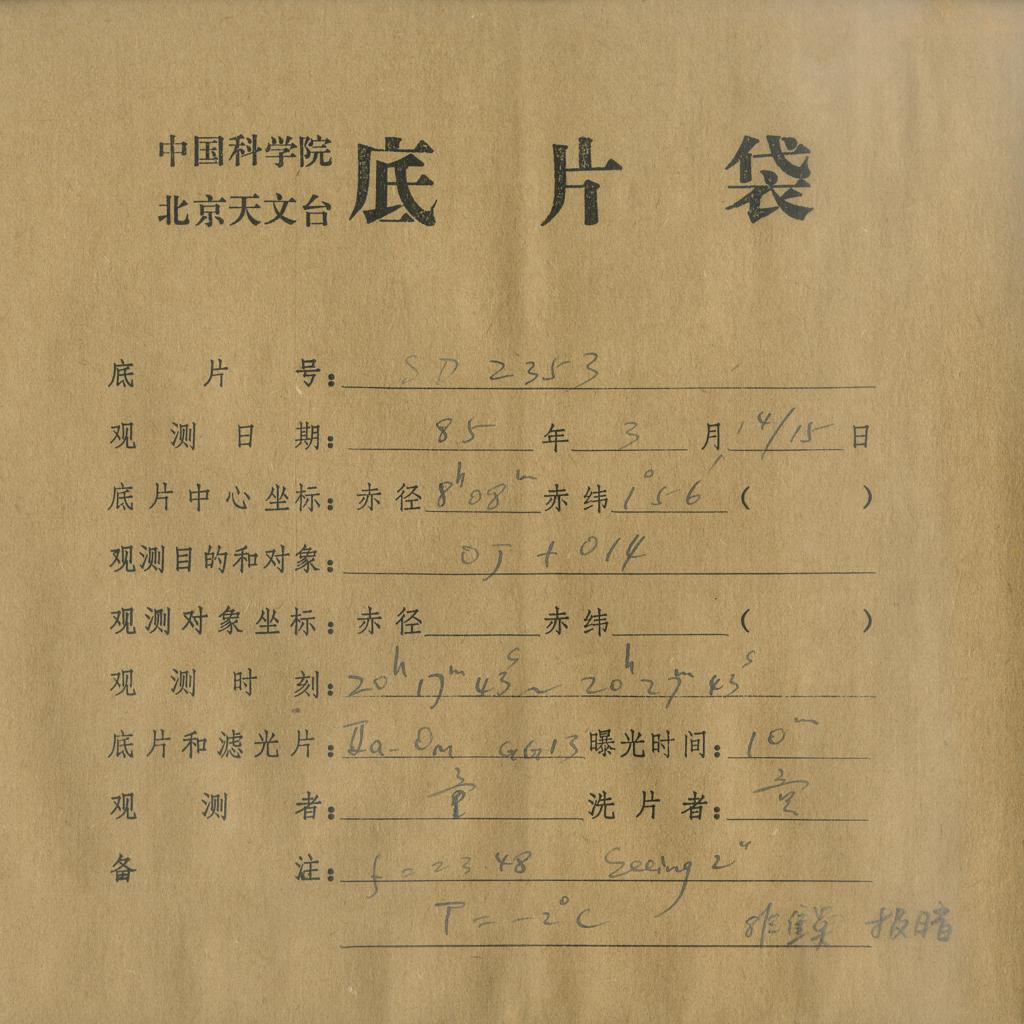 中国科学院
北京天文台 底片袋
底片号: SD 2353
观测日期: 85 年 3 月 14/15 日
底片中心坐标: 赤径 8h08m 赤纬 1°56′ ( )
观测目的和对象: OJ + 014
观测对象坐标: 赤径 赤纬 ( )
观测时刻: 20h17m43s ~ 20h27m43s
底片和滤光片: IIa-OM GG13 曝光时间: 10m
观测者: 洗片者:
备注: f = 23.48 Seeing 2"
T = -2°C 报暗